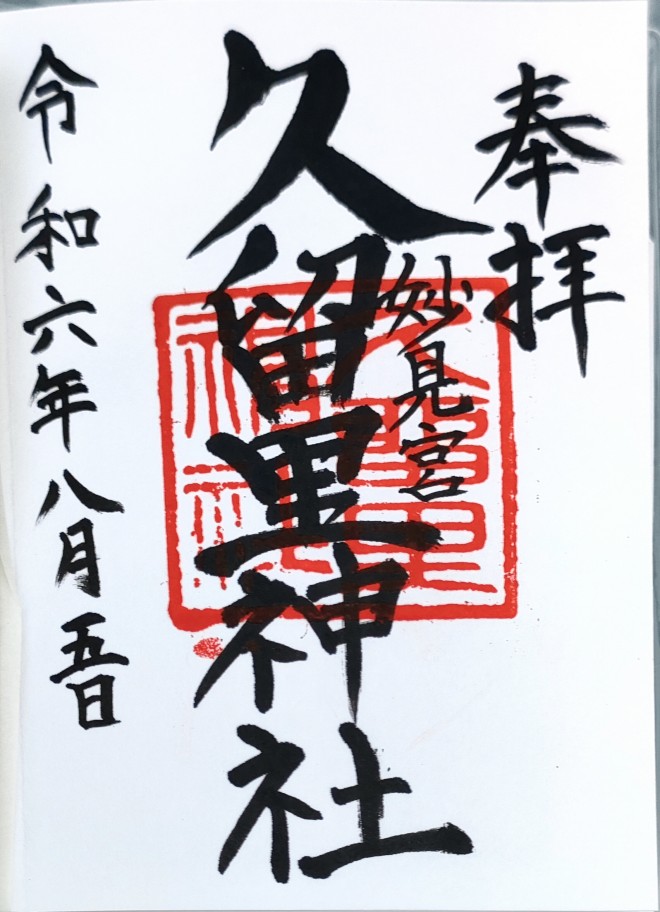 奉拝
妙見宮
久留里神社
令和六年八月五日